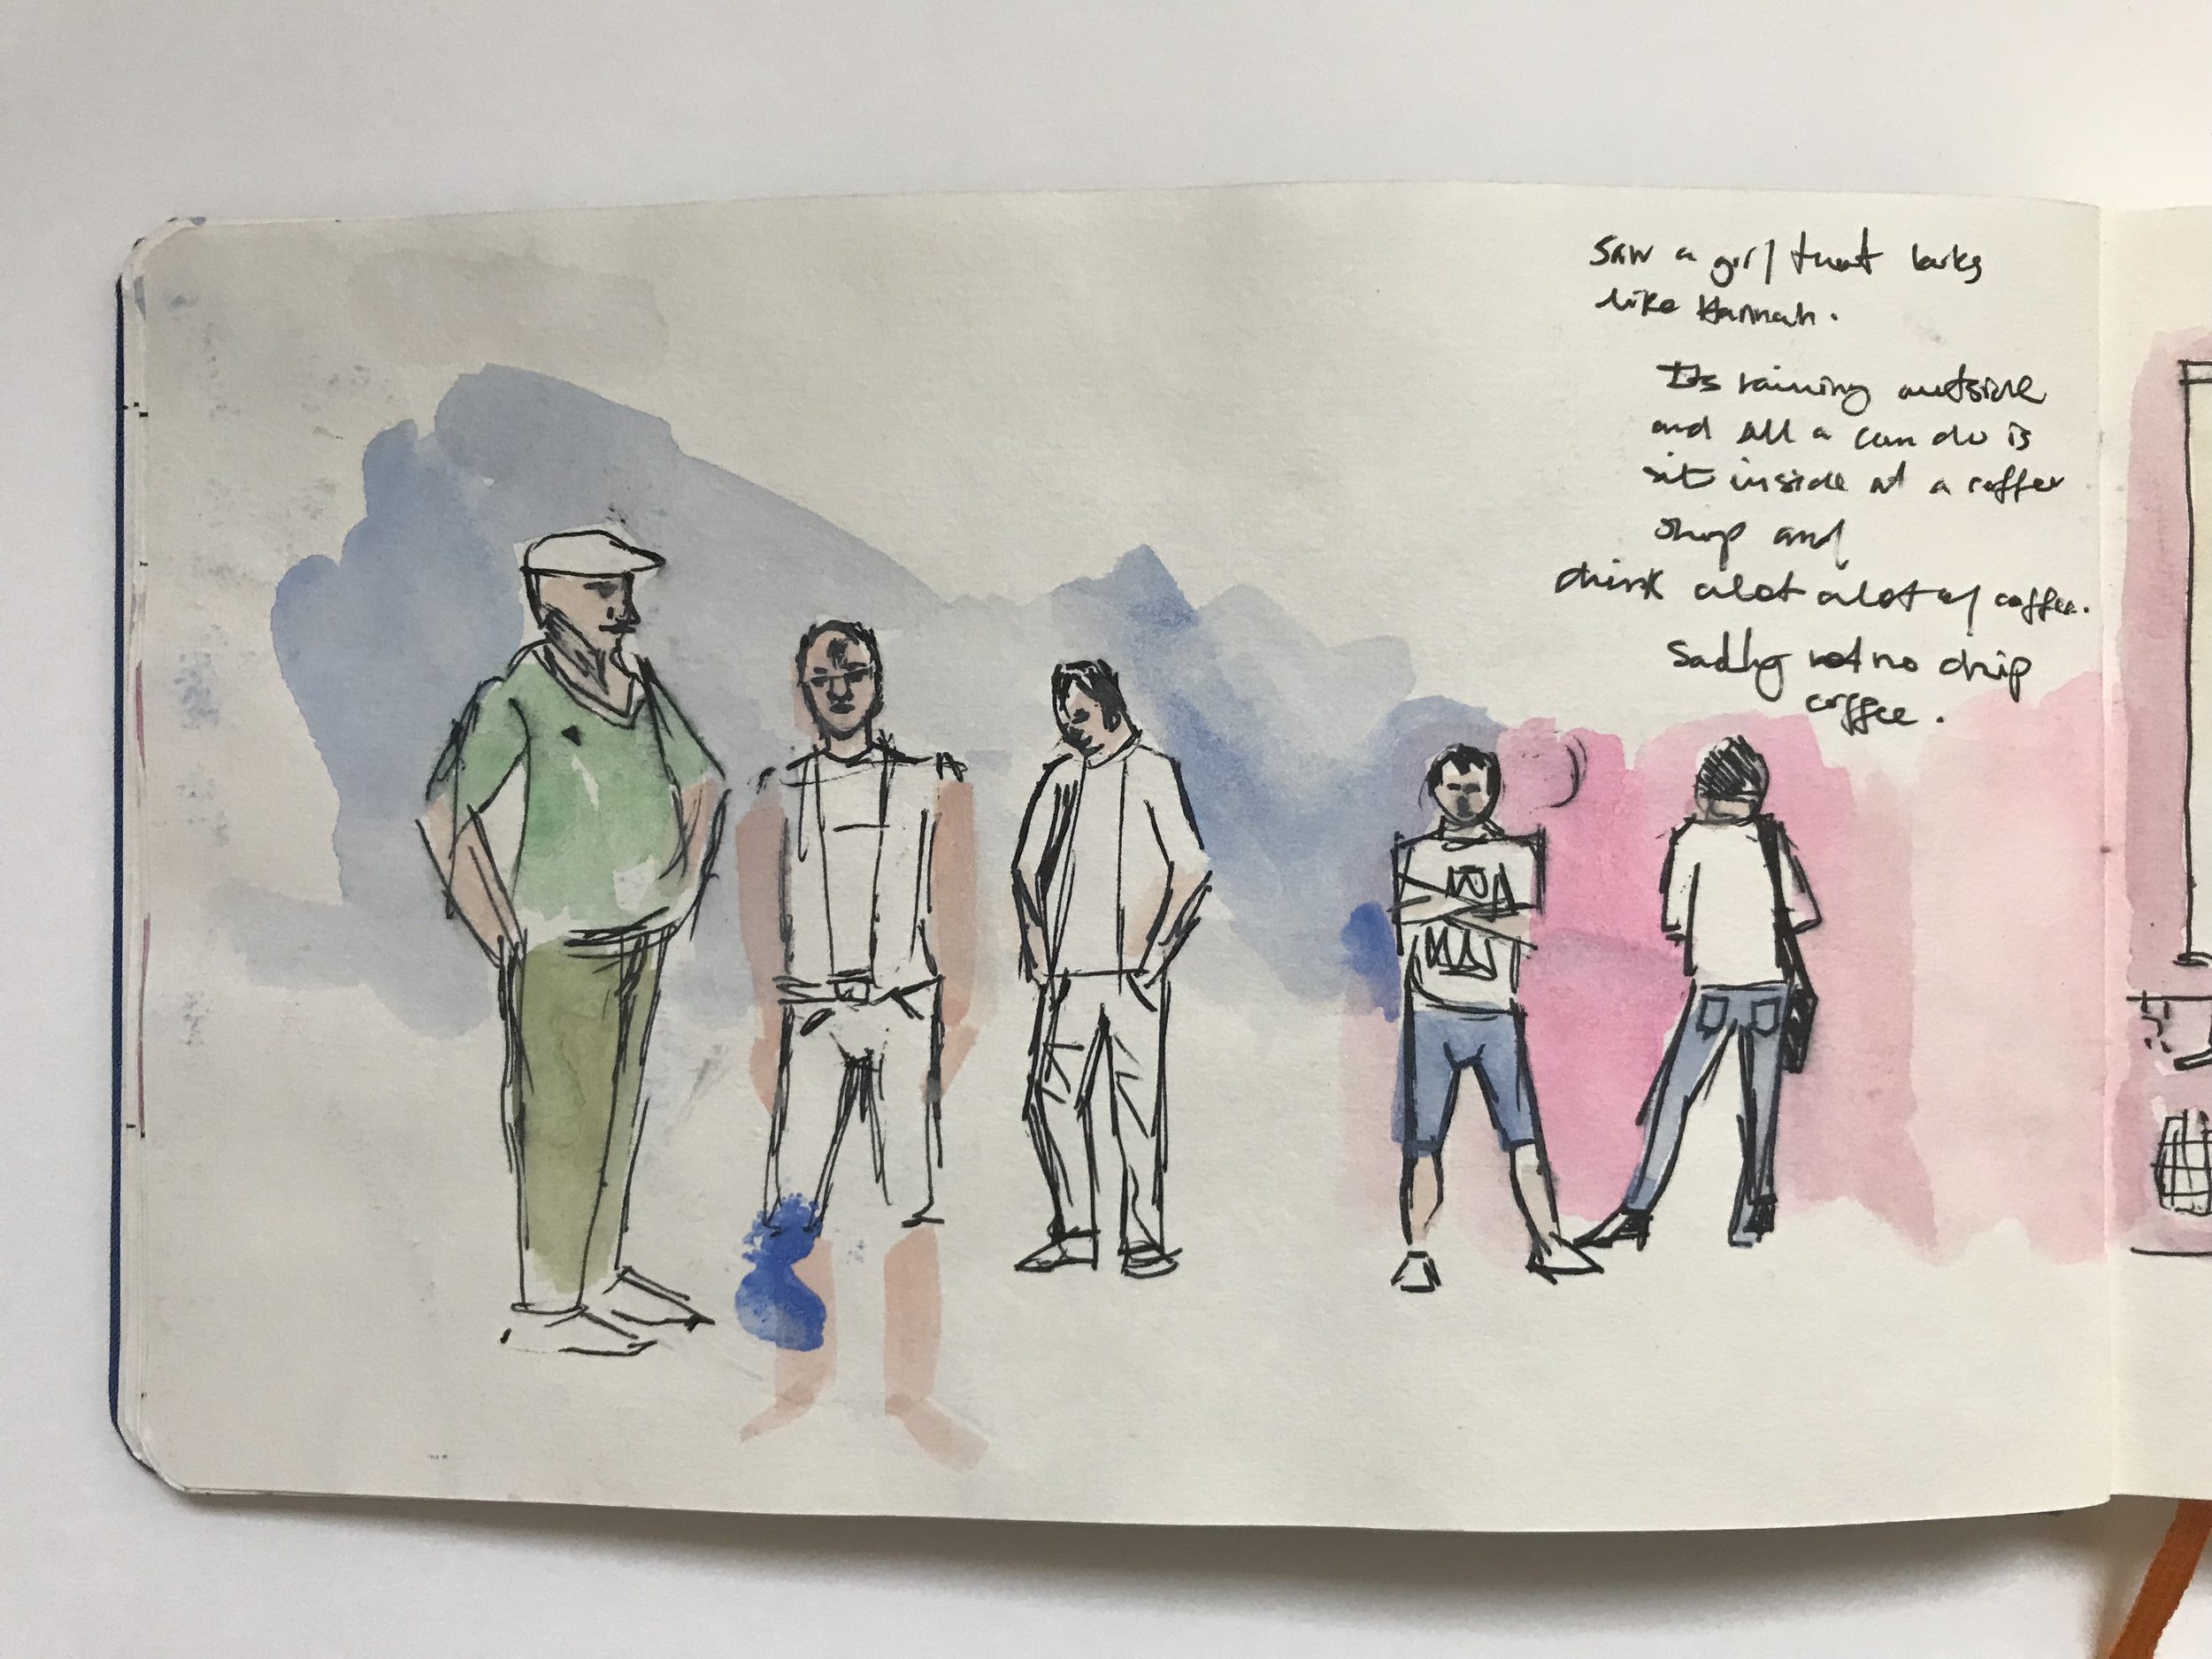 Saw a girl that looks
like Hannah.
Its raining outside
and all a can do is
sit inside at a coffee
shop and
drink alot alot of coffee.
Sadly no drip
coffee.